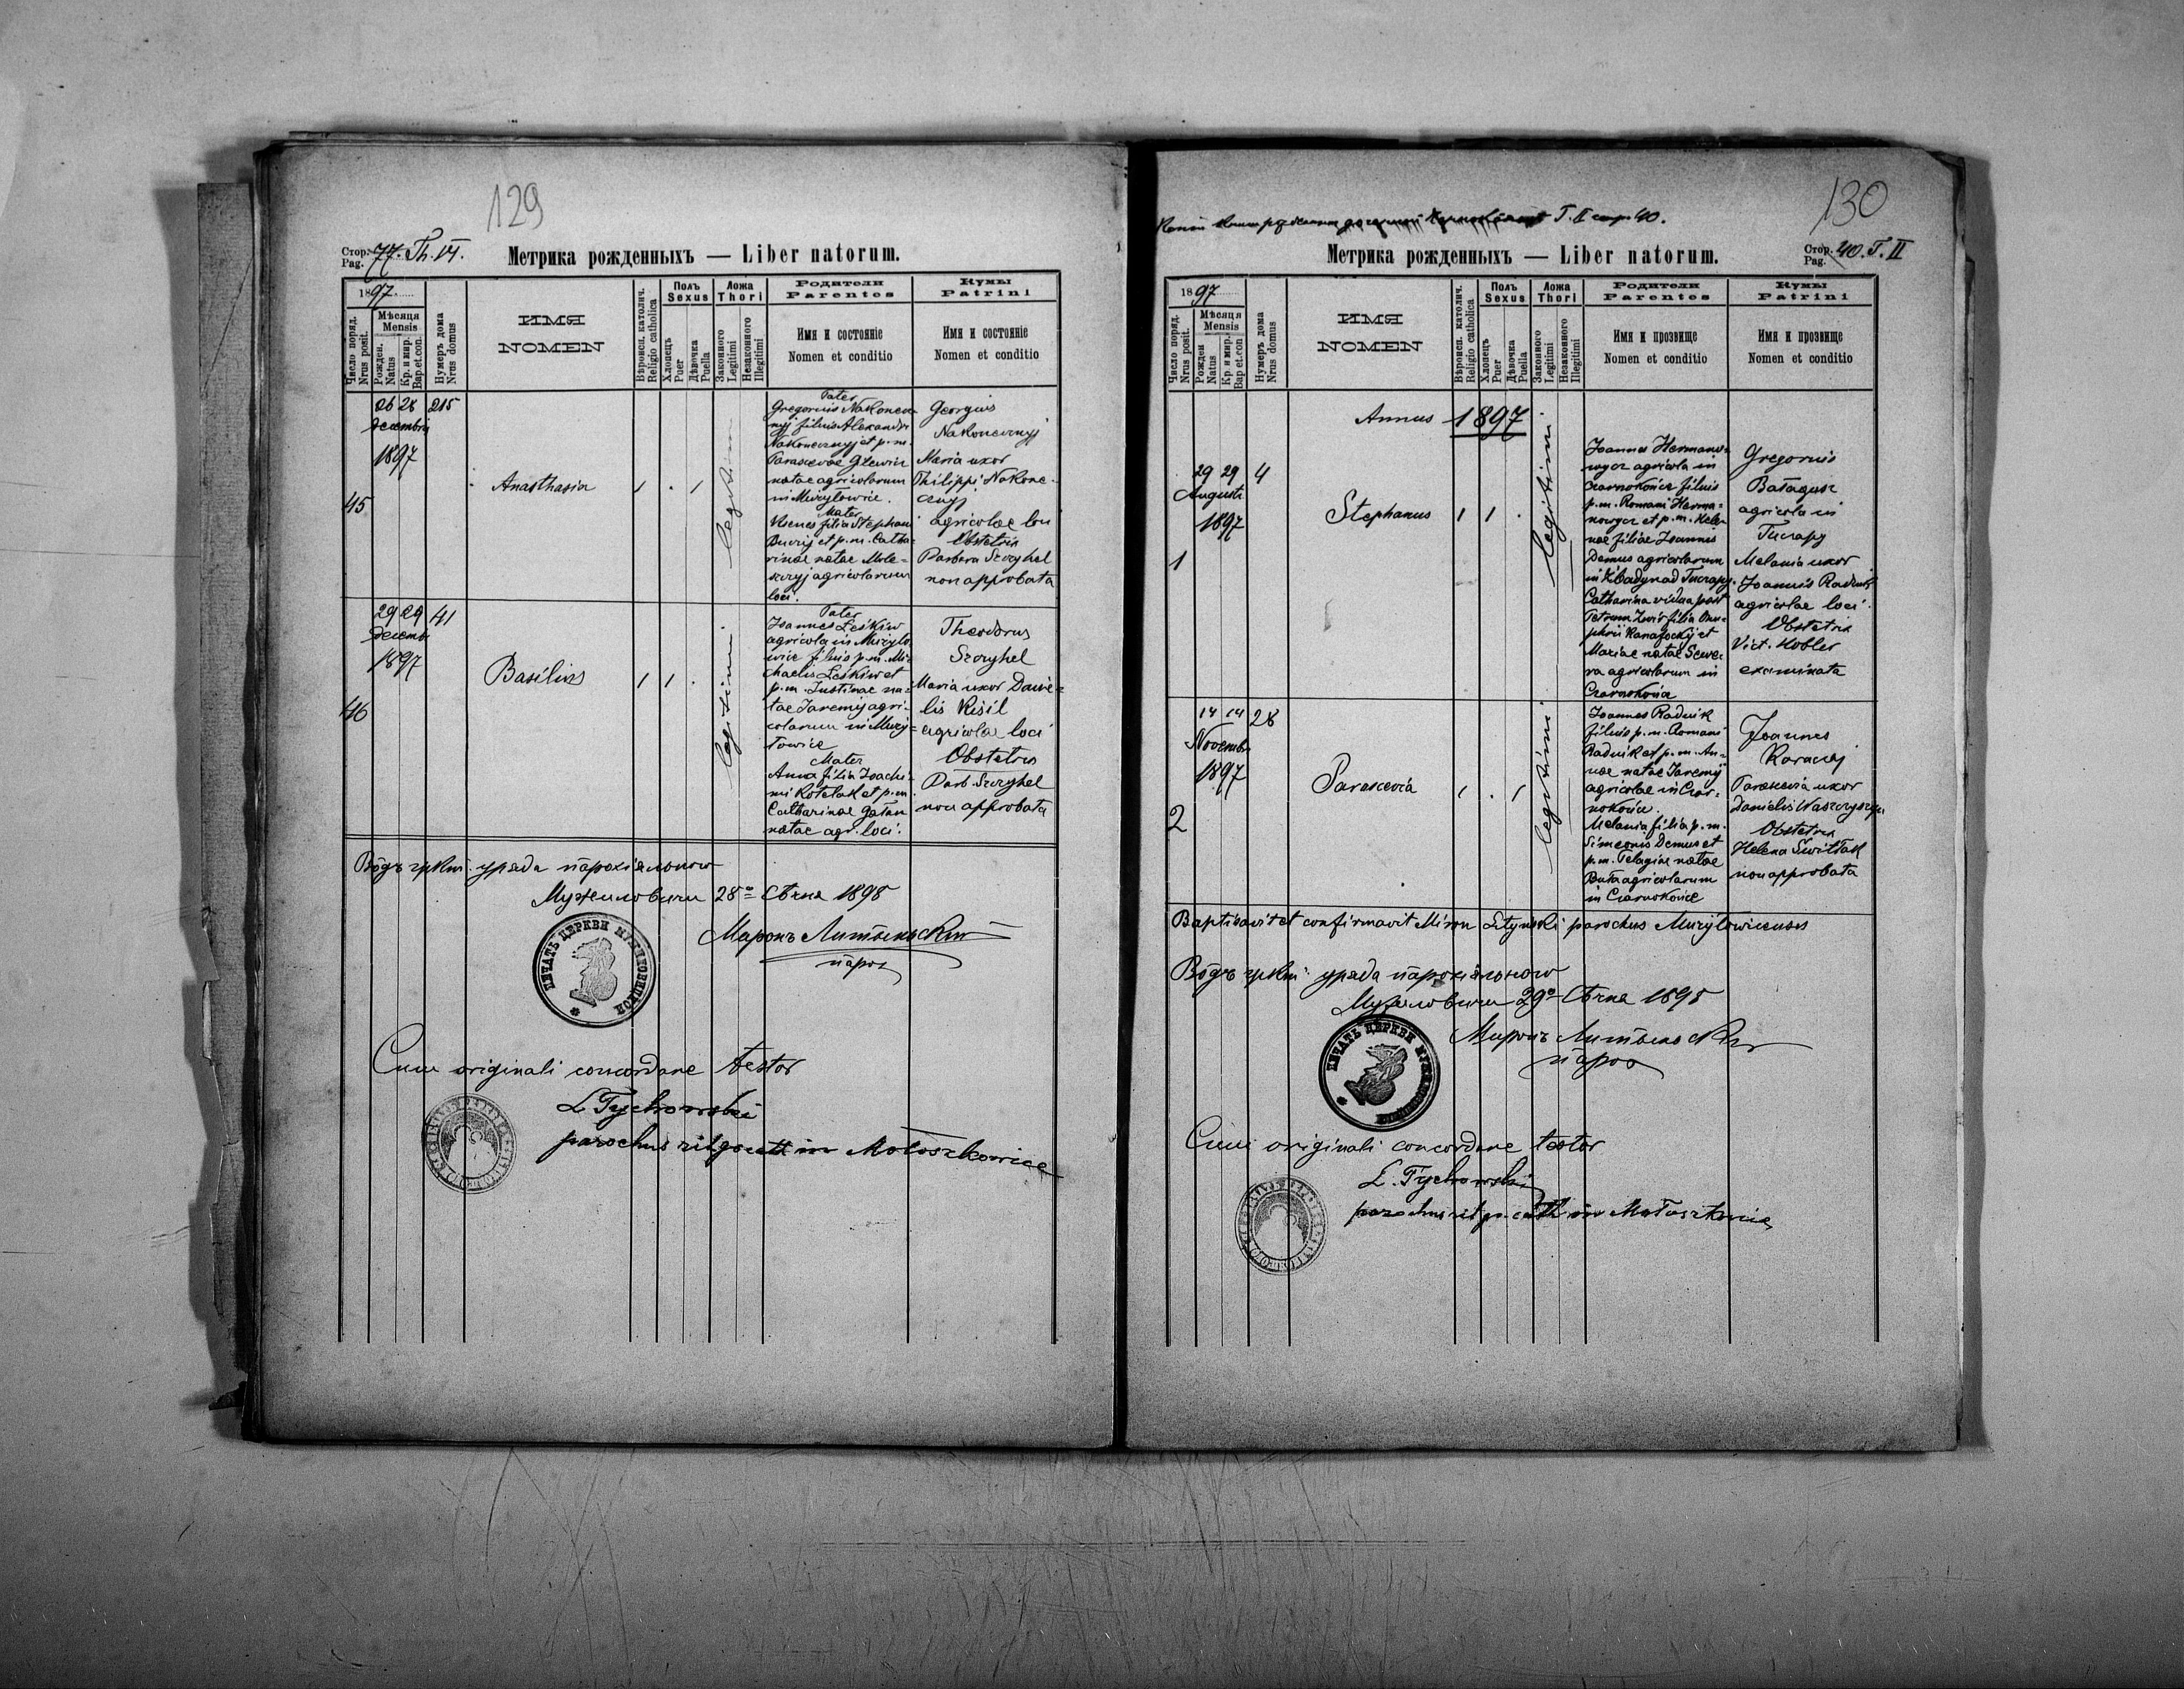 129
Стор. Pag. 77. Th. VI.
Метрика рожденныхъ — Liber natorum.
1897
Число поряд. Nrus posit.
Мѣсяця Mensis
Рожден. Natus
Кр. и мир. Bap. et. con.
Нумеръ дома Nrus domus
ИМЯ
NOMEN
Вѣроисп. католич. Religio catholica
Полъ Sexus
Хлопецъ Puer
Дѣвочка Puella
Ложа Thori
Законного Legitimi
Незаконного Illegitimi
Родители
Parentes
Имя и состояніе
Nomen et conditio
Кумы
Patrini
Имя и состояніе
Nomen et conditio
45
26 28 215
decembris
1897
Anasthasia
1 . 1
legitimi
Pater
Gregorius Nakonecz-
nyj filius Alexandri
Nakonecznyj et p. m.
Parascevae
natae agricolarum
in Mużyłowice.
Mater
Xenes filia Stephani
et p. m. Catha-
rinae natae
agricolarum
loci.
Georgius
Nakonecznyj
Maria uxor
Philippi Nakone-
cznyj
agricolae loci
Obstetrix
Barbara Szczyhel
non approbata
46
29 29 41
decemb.
1897
Basilius
1 1 .
legitimi
Pater
Joannes Leśkiw
agricola in Mużyło-
wice filius p. m. Mi-
chaelis Leśkiw et
p. m. Justinae na-
tae Jaremy agri-
colarum in Muży-
łowice
Mater
Anna filia Joachi-
mi Kotelak et p. m.
Catharinae
natae agr. loci.
Theodorus
Szczyhel
Maria uxor Danie-
lis Kisil
agricolae loci
Obstetrix
Barb. Szczyhel
non approbata
Вôдъ гркт. уряда парохіяльного
Мужиловичи 28о Сѣчня 1898
Миронъ Литыньскій
парох
ПЕЧАТЬ ЦЕРКВИ МУЖИЛОВИЦКОЙ
Cum originali concordare testor
L Tychowski
parochus rit gr cath in Mołoszkowice
130
Т. II стр. 40.
Метрика рожденныхъ — Liber natorum.
Стор. Pag. 40. T. II
1897
Число поряд. Nrus posit.
Мѣсяця Mensis
Рожден Natus
Кр. и мир. Bap et. con
Нумеръ дома Nrus domus
ИМЯ
NOMEN
Вѣроисп. католич. Religio catholica
Полъ Sexus
Хлопецъ Puer
Дѣвочка Puella
Ложа Thori
Законного Legitimi
Незаконного Illegitimi
Родители
Parentes
Имя и прозвище
Nomen et conditio
Кумы
Patrini
Имя и прозвище
Nomen et conditio
Annus 1897
1
29 29 4
Augusti
1897
Stephanus
1 1 .
legitimi
Joannes Hermano-
wycz agricola in
Czarnokońce filius
p. m. Romani Herma-
nowycz et p. m. Hele-
nae filiae Joannis
Demus agricolarum
in Kłbady ad Tuczapy.
Catharina vidua post
Petrum Zwir filia Onu-
phrii et
Mariae natae
agricolarum in
Czarnokońce
Gregorius
Bałagusz
agricola in
Tuczapy
Melania uxor
Joannis Radnik
agricolae loci.
Obstetrix
Vict. Kobler
examinata
2
14 14 28
Novemb.
1897
Parascevia
1 . 1
legitimi
Joannes Radnik
filius p. m. Romani
Radnik et p. m. An-
nae natae Jaremy
agricolae in Czar-
nokońce.
Melania filia p. m.
Simeonis Demus et
p. m. Pelagiae natae
Buta agricolarum
in Czarnokońce
Joannes
Karaczej
Parascevia uxor
Danielis
Obstetrix
Helena Świtlak
non approbata
Baptisavit et confirmavit Miron Lityński parochus Mużyłowicensis
Вôдъ гркт. уряда парохіяльного
Мужиловичи 29о Сѣчня 1898
Миронъ Литыньскій
парох
ПЕЧАТЬ ЦЕРКВИ МУЖИЛОВИЦКОЙ
Cum originali concordare testor
L. Tychowski
parochus rit gr. cath in Mołoszkowice